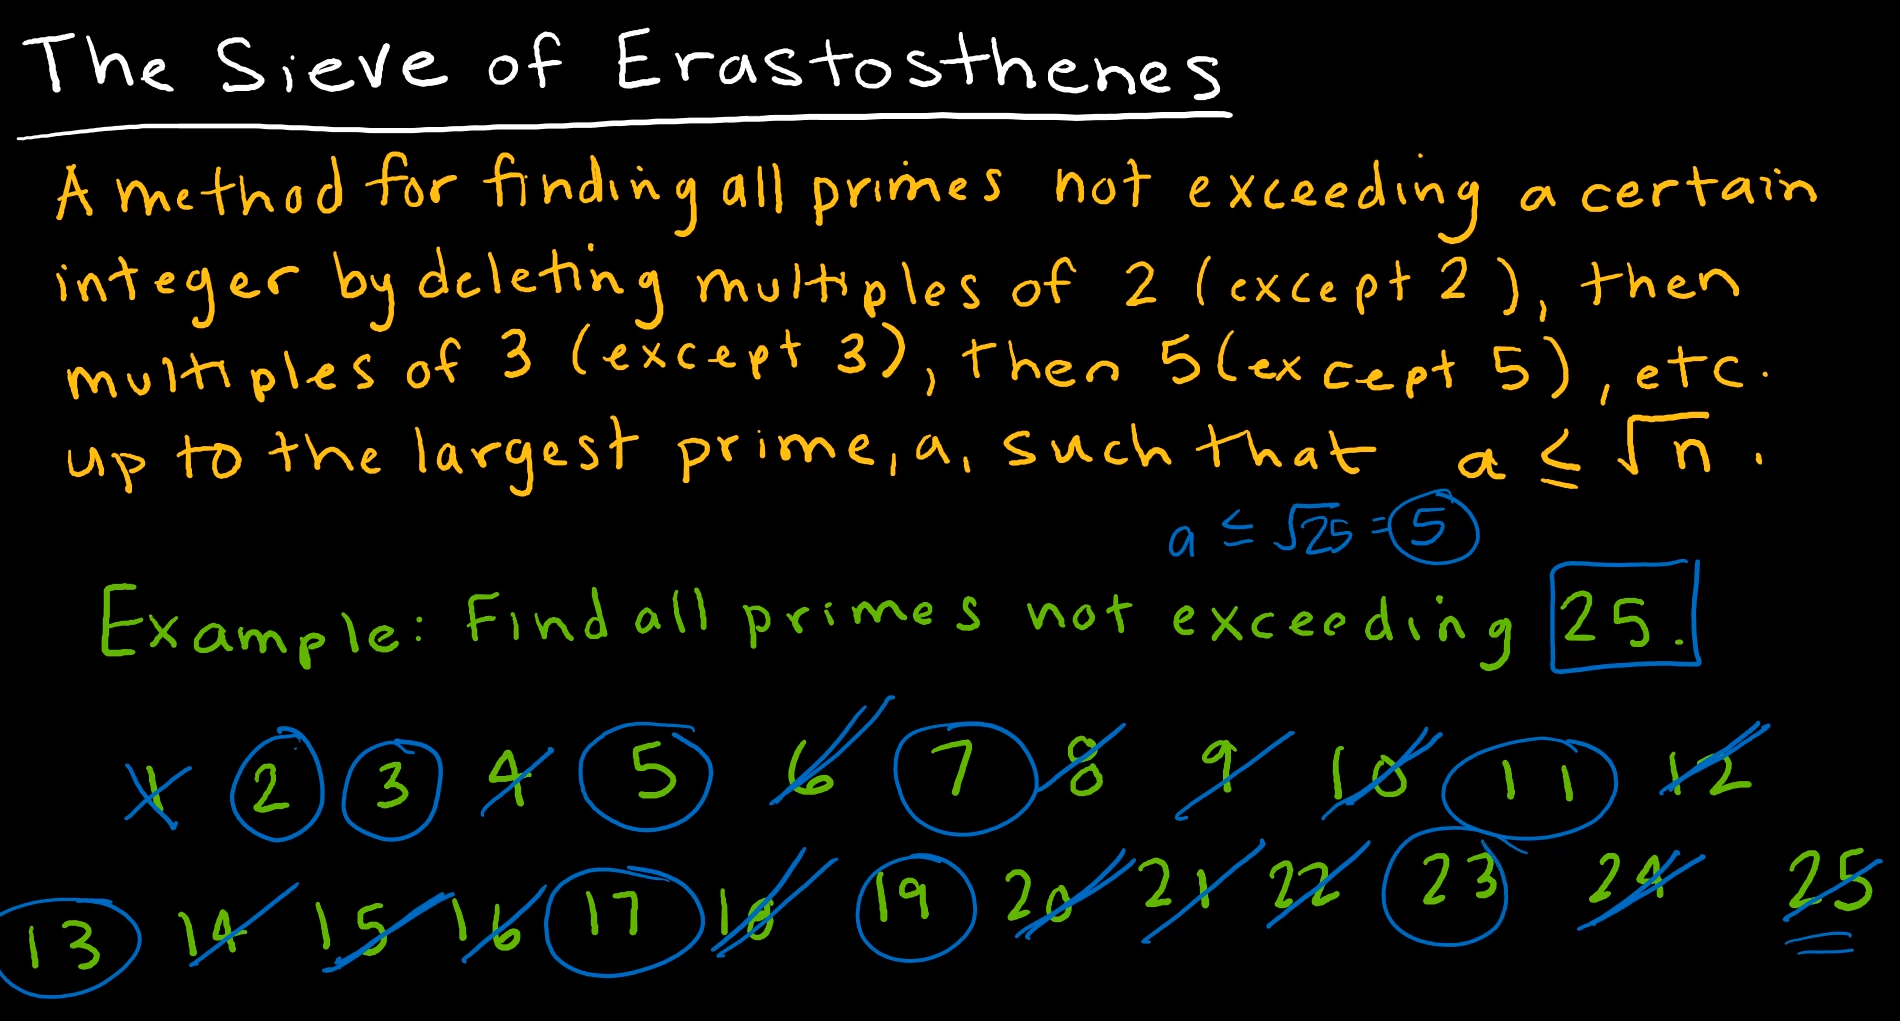 The Sieve of Erastosthenes
A method for finding all primes not exceeding a certain
integer by deleting multiples of 2 (except 2), then
multiples of 3 (except 3), then 5 (except 5), etc.
up to the largest prime, a, such that a ≤ √n.
a ≤ √25 = 5
Example: Find all primes not exceeding 25.
1 2 3 4 5 6 7 8 9 10 11 12
13 14 15 16 17 18 19 20 21 22 23 24 25